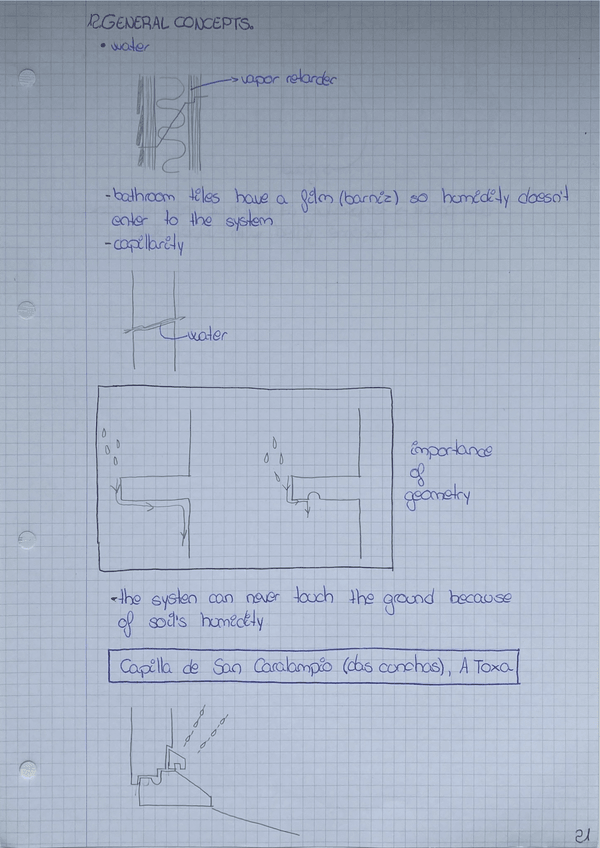 12.GENERAL CONCEPTS.
• water
vapor retarder
-bathroom tiles have a film (barniz) so humidity doesn't
enter to the system
-capillarity
water
importance
of
geometry
•the system can never touch the ground because
of soil's humidity
Capilla de San Caralampio (das conchas), A Toxa
21